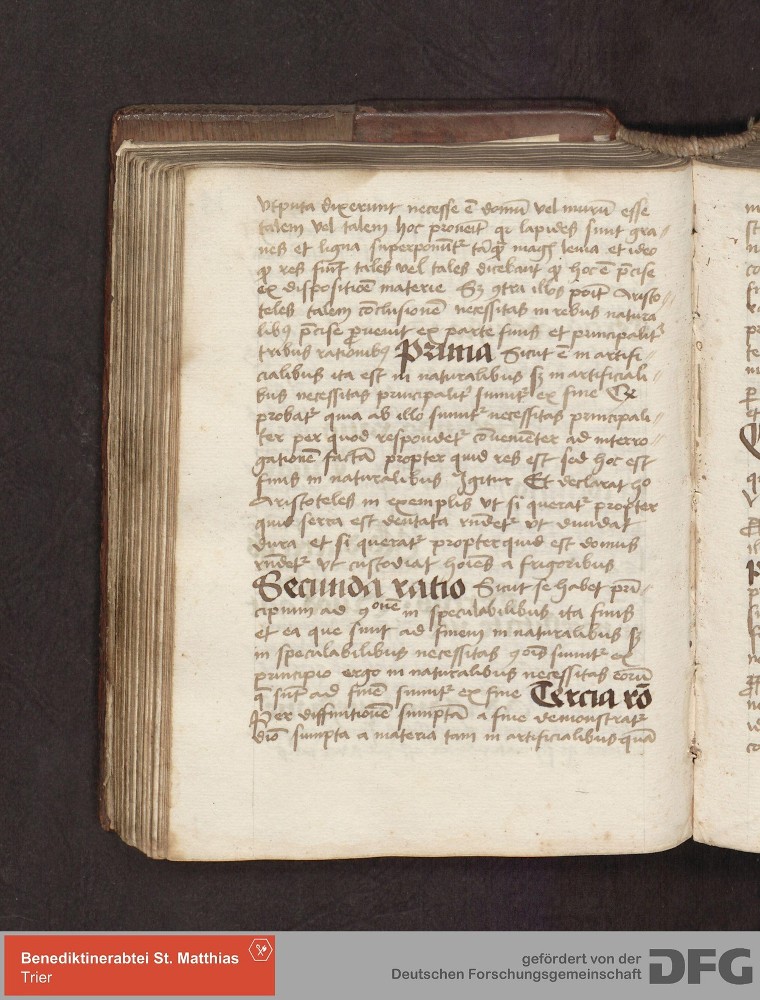 vtputa dixerunt necesse ē domū vel murū esse
talem vel talem hoc proueīt qr lapides sunt gra-
ues et ligna superponūtr tāqȝ magȝ leuia et ideo
qȝ res sunt tales vel tales dicebant qȝ hoc ē p̄cise
ex dispositiōe materie Sȝ ꝯtra illos poīt Aristo-
teles talem cōclusionē necessitas in rebus natura
libꝰ p̄cise prouenit ex parte finis et principalitr
tribus rationibꝰ Prima Sicut ē in artifi-
cialibus ita est in naturalibus sȝ in artificiali-
bus necessitas principalitr sumitr ex fine
probatr quia ab illo sumitr necessitas principali-
ter per quod respondetr cōuenienter ad interro-
gationē factā propter quid res est sed hoc est
finis in naturalibus Igitur Et declarat ho
Aristoteles in exemplis vt si queratr propter
quid serra est dentata rn̄detr vt diuidat
dura et si queratr propterquid est domus
rn̄detr vt custodiat hoīes a frigoribus
Secunda ratio Sicut se habet prī-
cipium ad ꝯonē in speculabilibus ita finis
et ea que sunt ad finem in naturalibus sȝ
in speculabilibus necessitas ꝯoīs sumitr ex
principio ergo in naturalibus necessitas eorū
q̄ sūt ad finē sumitr ex fine Tercia rō
Per diffinitionē sumptā a fine demonstratr
dīo sumpta a materia tam in artificialibus quā
Benediktinerabtei St. Matthias
Trier
gefördert von der
Deutschen Forschungsgemeinschaft
DFG